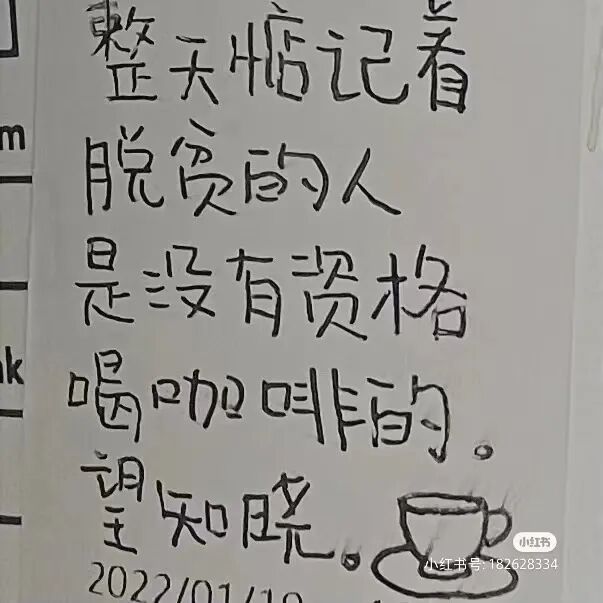 整天惦记着
脱贫的人
是没有资格
喝咖啡的。
望知晓。
2022/01/19
m
nk
小红书
小红书号: 182628334